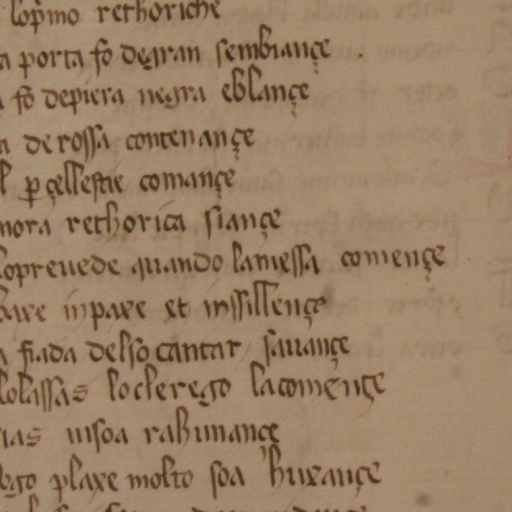 lop̄mo rethoriche
a porta fo degran sembiançe
a fo depiera negra eblançe
a de rossa contenançe
l p̱ çellestie comançe
nora rethorica siançe
loprevede quando lamessa començe
axe inpaxe et inssillençe
a fiada delso cantar savançe
lolassas loclerego lacomençe
ias insoa rahunançe
ego plaxe molto soa huxançe